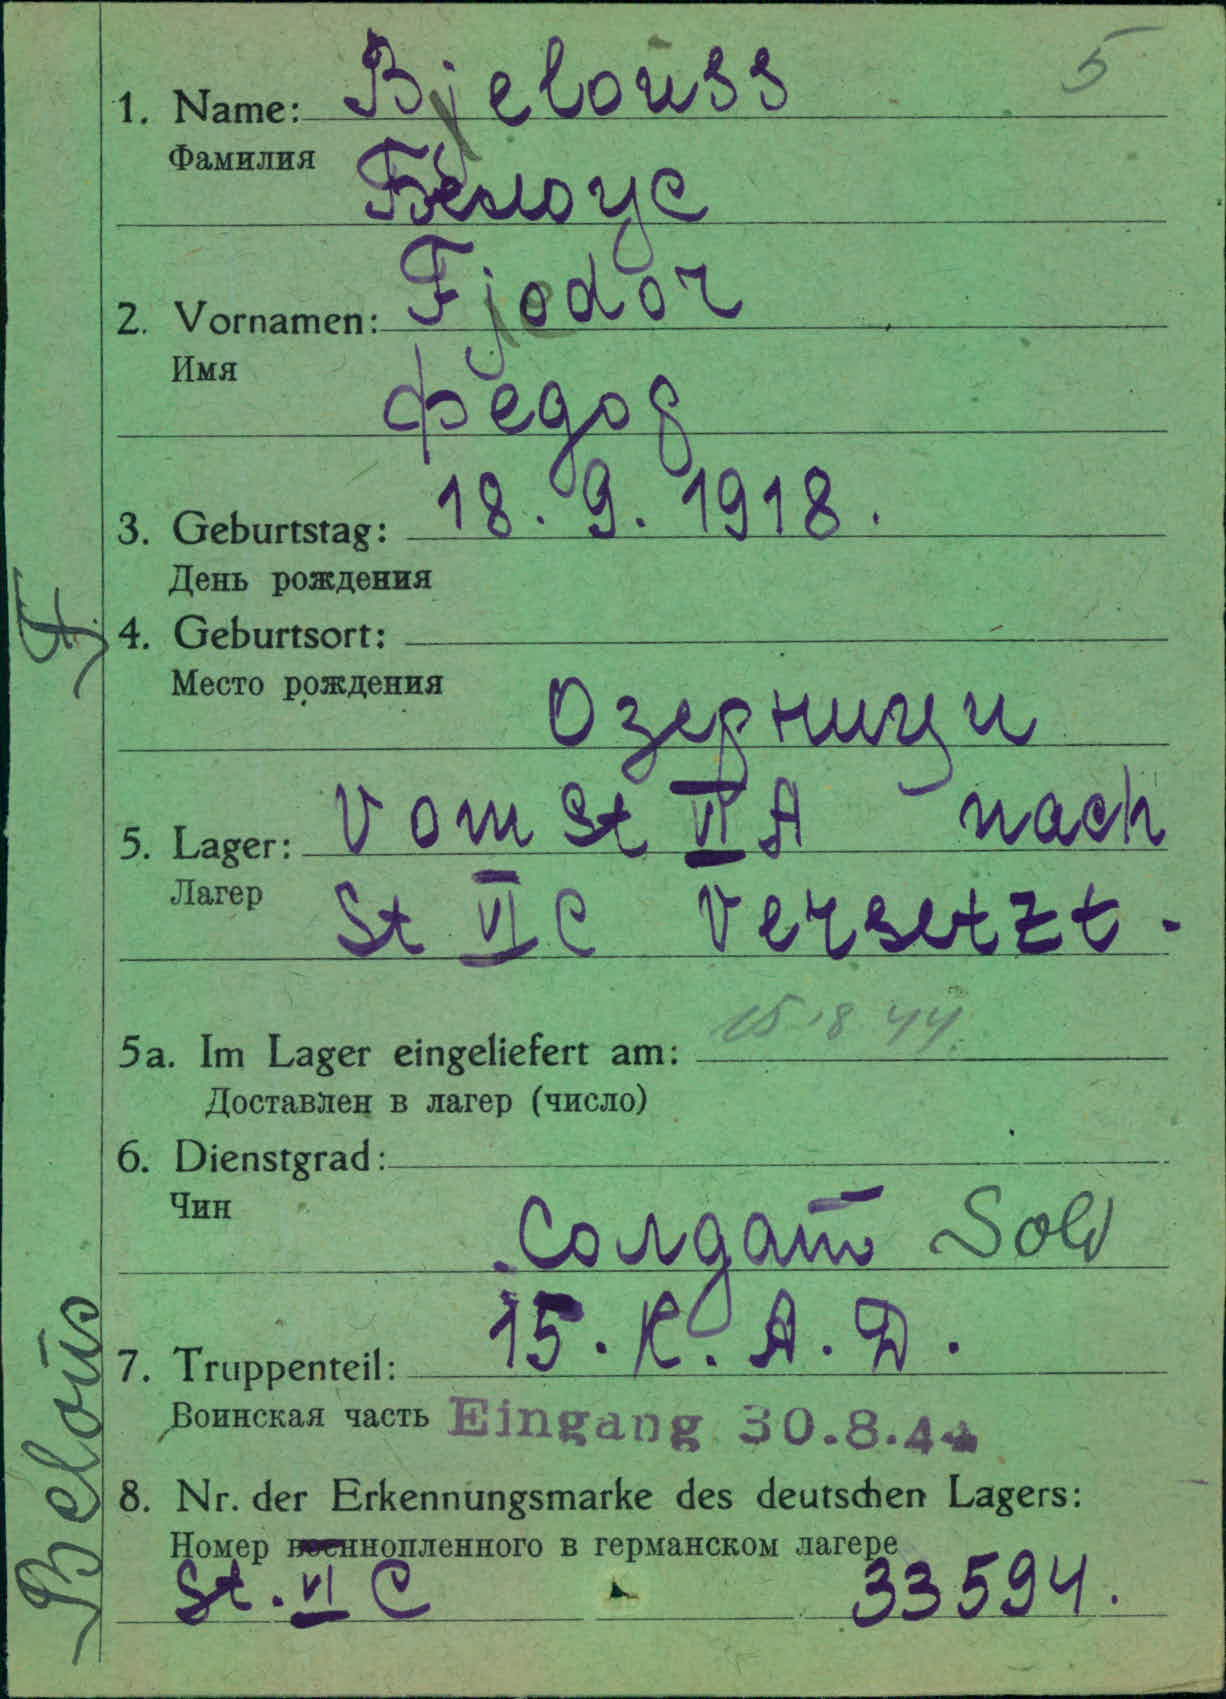 5
1. Name: Bjelouss
Фамилия
Белоус
2. Vornamen: Fjodor
Имя
Федор
3. Geburtstag: 18. 9. 1918.
День рождения
4. Geburtsort:
Место рождения
Озерници
5. Lager: Vom St VI A nach
Лагер
St VI C Versetzt.
5a. Im Lager eingeliefert am: 15.8 44.
Доставлен в лагер (число)
6. Dienstgrad:
Чин
Солдат Sold
7. Truppenteil: 15. К. А. Д.
Воинская часть Eingang 30.8.44
8. Nr. der Erkennungsmarke des deutschen Lagers:
Номер военнопленного в германском лагере
St. VI C 33594.
Beloüs F.